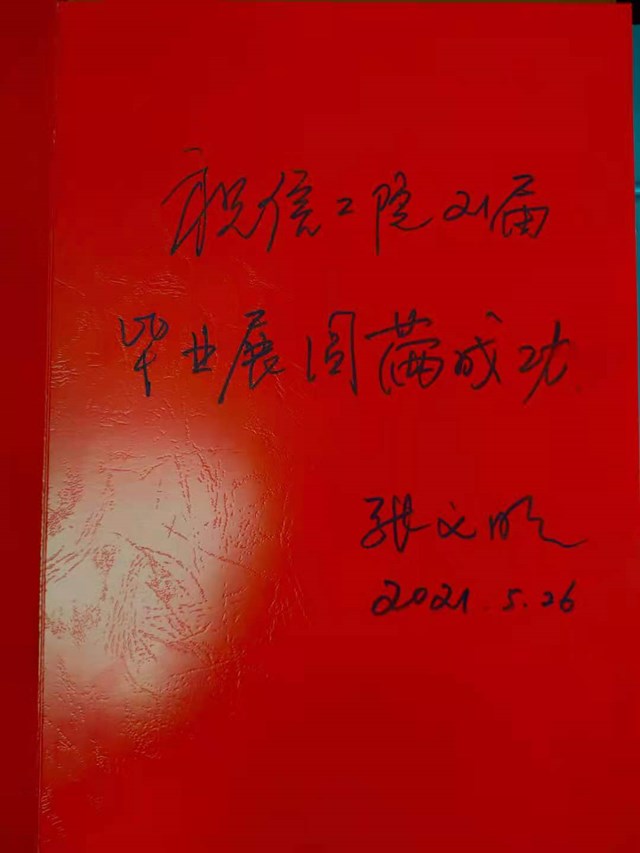 祝信工院21届
毕业展圆满成功
张文明
2021.5.26